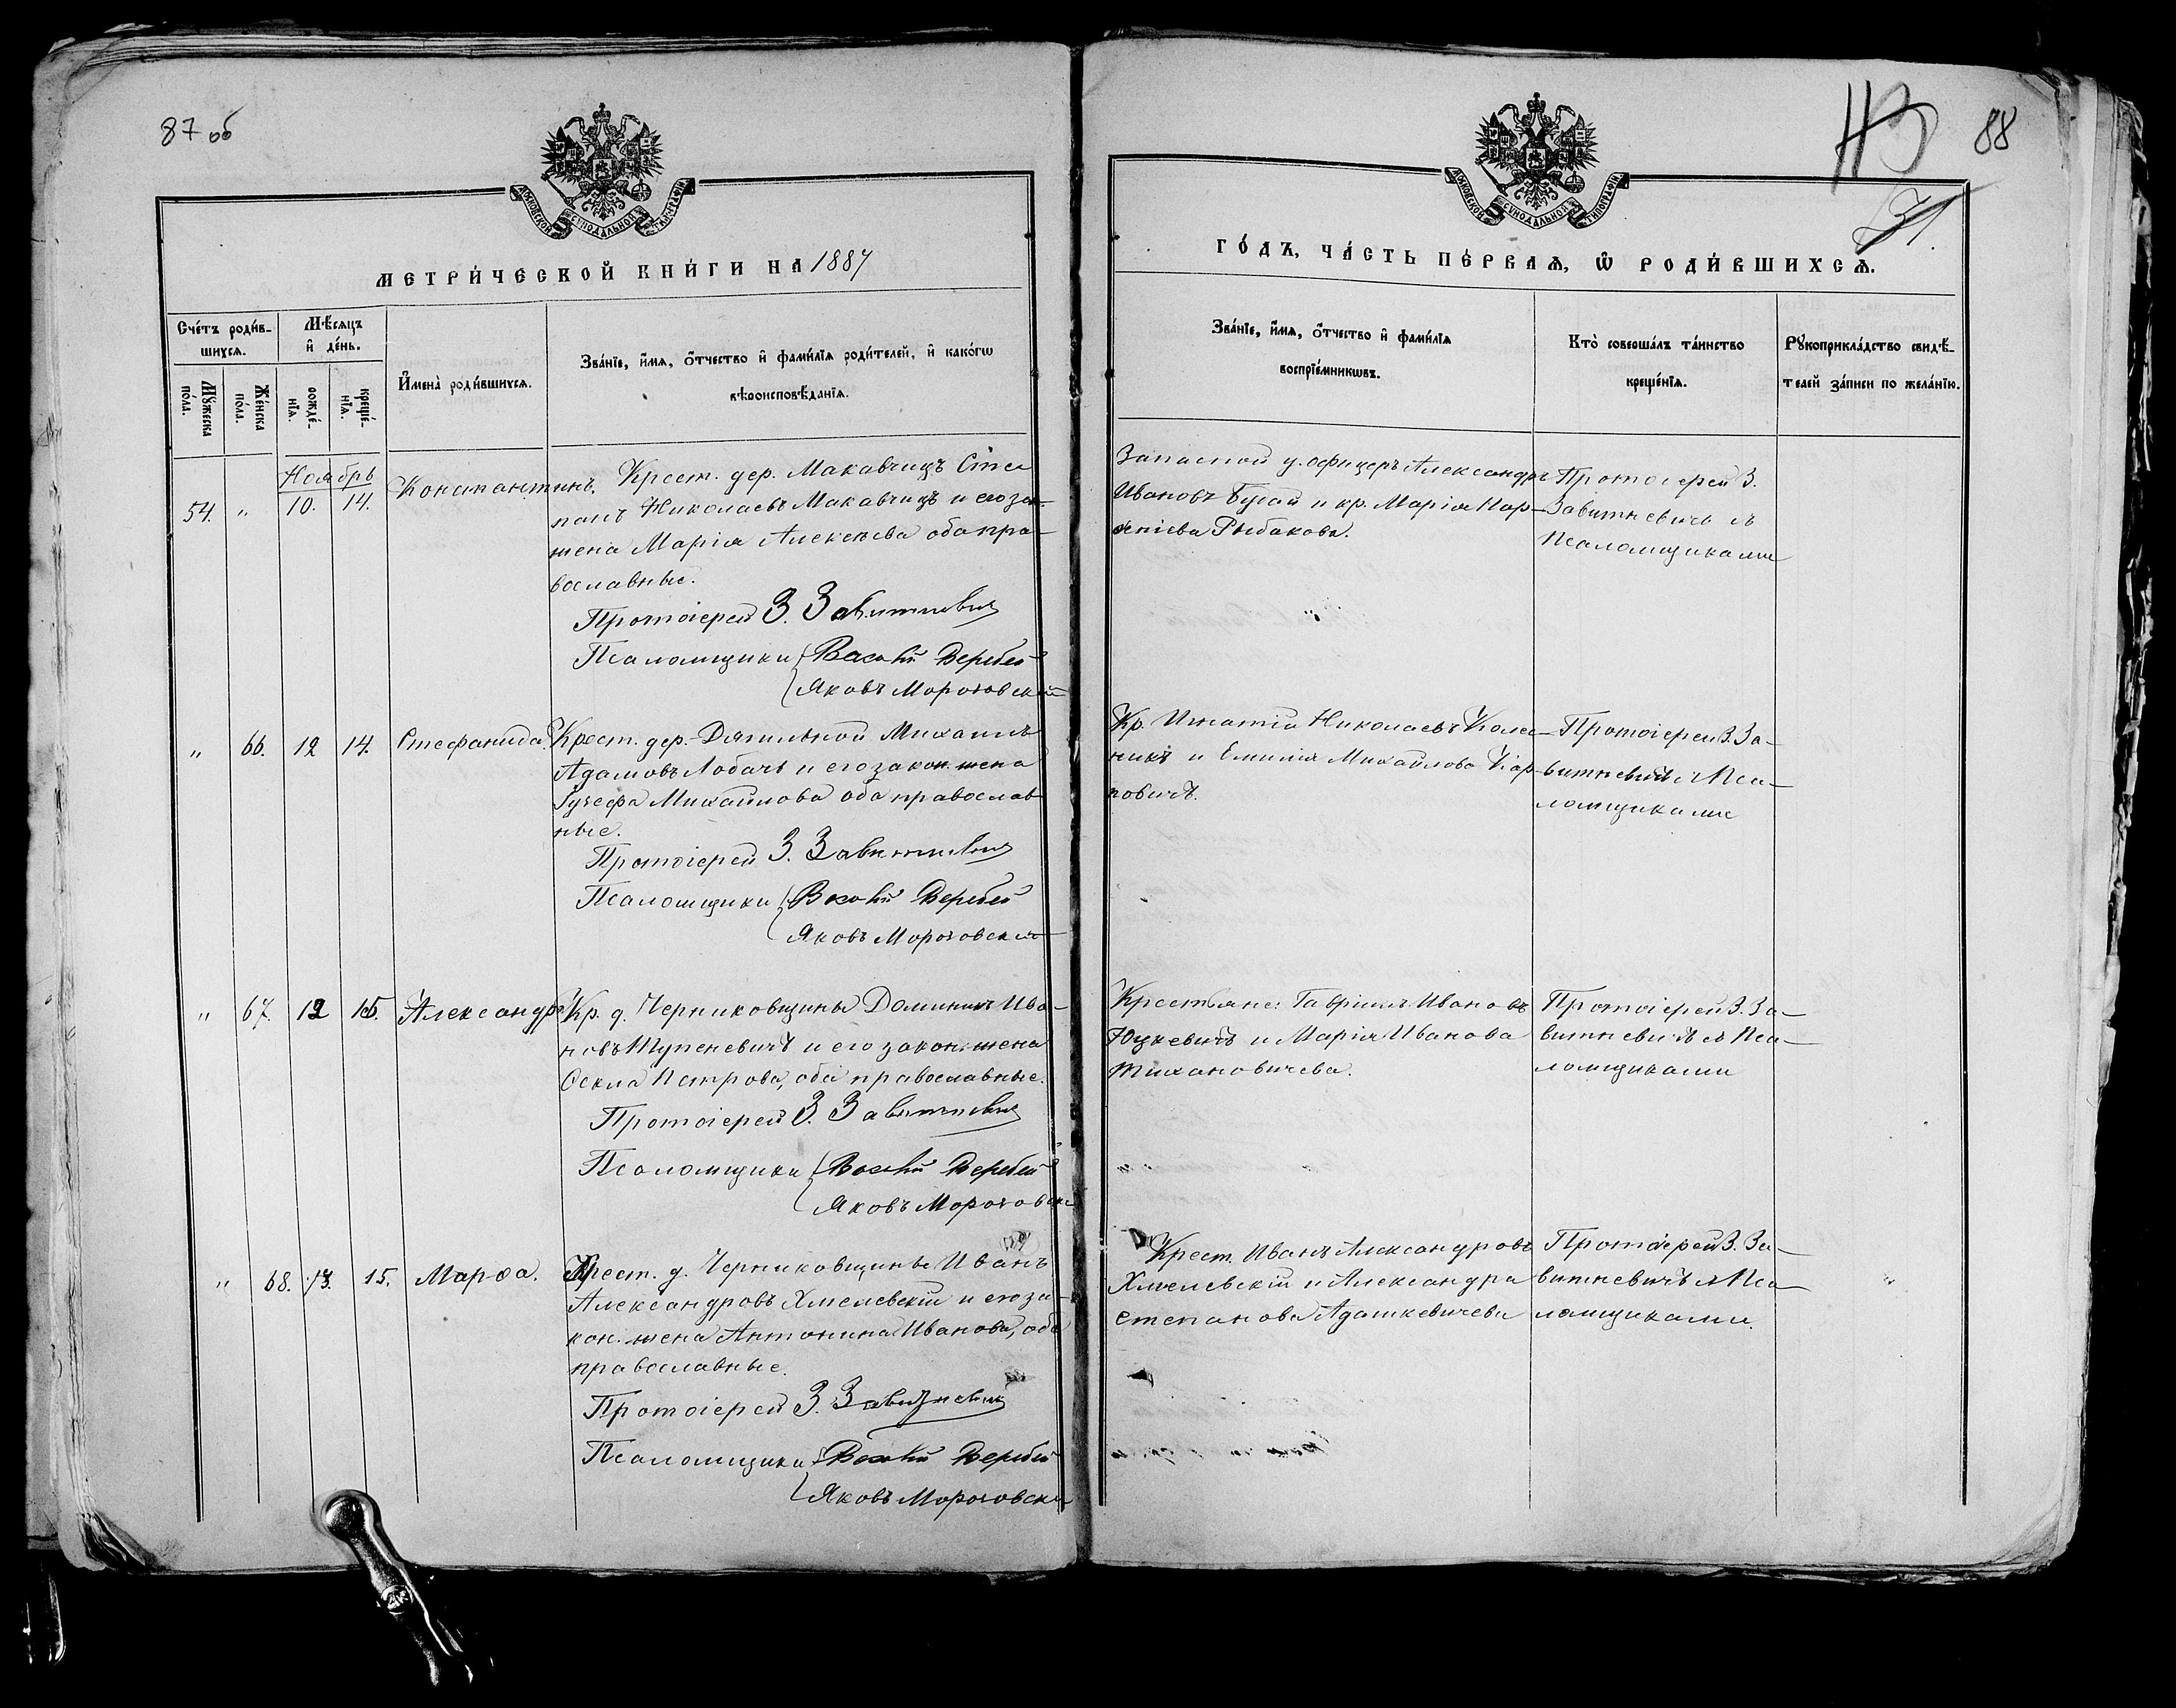 87 об
МОСКОВСКОЙ СѴНОДАЛЬНОЙ ТИПОГРАФІИ
МЕТРИ́ЧЕСКОЙ КНИ́ГИ НА 1887
Сче́тъ роди́в-
шихся.
Мѣ́сяцъ
и҆ де́нь.
Му́жеска
по́ла.
Же́нска
по́ла.
рожде́-
нїя.
креще́-
нїя.
И҆мена̀ роди́вшихся.
Зва́нїе, и҆́мя, о҆́тчество и҆ фами́лїя роди́телей, и҆ како́гѡ
вѣроисповѣ́данїя.
Ноябрь
54. " 10. 14. Константинъ.
Крест. дер. Макавчицъ Сте-
панъ Николаевъ Макавчицъ и его зак.
жена Марія Алексѣева оба пра-
вославные.
Протоіерей З. Завитневичъ
Псаломщики Васілій Веребей
Яковъ Мороховскій
" 66. 12 14. Стефанида.
Крест. дер. Дягильной Михаилъ
Адамовъ Лобачъ и его закон. жена
Михайлова оба православ-
ные.
Протоіерей З. Завитневичъ
Псаломщики Васілій Веребей
Яковъ Мороховскій
" 67. 12 15. Александра
Кр. д. Черниковщины Доминикъ Ива-
новъ Тупеневичъ и его закон. жена
Фекла Петрова, оба православные.
Протоіерей З. Завитневичъ
Псаломщики Васілій Веребей
Яковъ Мороховскій
" 68. 13. 15. Марѳа.
Крест. д. Черниковщины Иванъ
Александровъ Хмелевскій и его за-
кон. жена Антонина Иванова, оба
православные.
Протоіерей З. Завитневичъ
Псаломщики Васілій Веребей
Яковъ Мороховскій
88
МОСКОВСКОЙ СѴНОДАЛЬНОЙ ТИПОГРАФІИ
ГО́ДЪ, ЧА́СТЬ ПЕ́РВАЯ, Ѽ РОДИ́ВШИХСЯ.
Зва́нїе, и҆́мя, о҆́тчество и҆ фами́лїя
воспрїе́мникѡвъ.
Кто̀ соверша́лъ та́инство
креще́нїя.
Рꙋкоприкла́дство свидѣ́-
телей за́писи по жела́нїю.
Запасной у. офицеръ Александръ
Ивановъ Бугай и кр. Марія Пар-
ѳеніева Рыбакова.
Протоіерей З.
Завитневичъ съ
Псаломщиками
Кр. Игнатій Николаевъ Колес-
никъ и Емилія Михайлова Кар-
повичъ.
Протоіерей З. За-
витневичъ съ Пса-
ломщиками
Крестьяне: Гавріилъ Ивановъ
Юцкевичъ и Марія Иванова
Тихановичева.
Протоіерей З. За-
витневичъ съ Пса-
ломщиками
Крест. Иванъ Александровъ
Хмелевскій и Александра
Степанова Адашкевичева
Протоіерей З. За-
витневичъ съ Пса-
ломщиками.